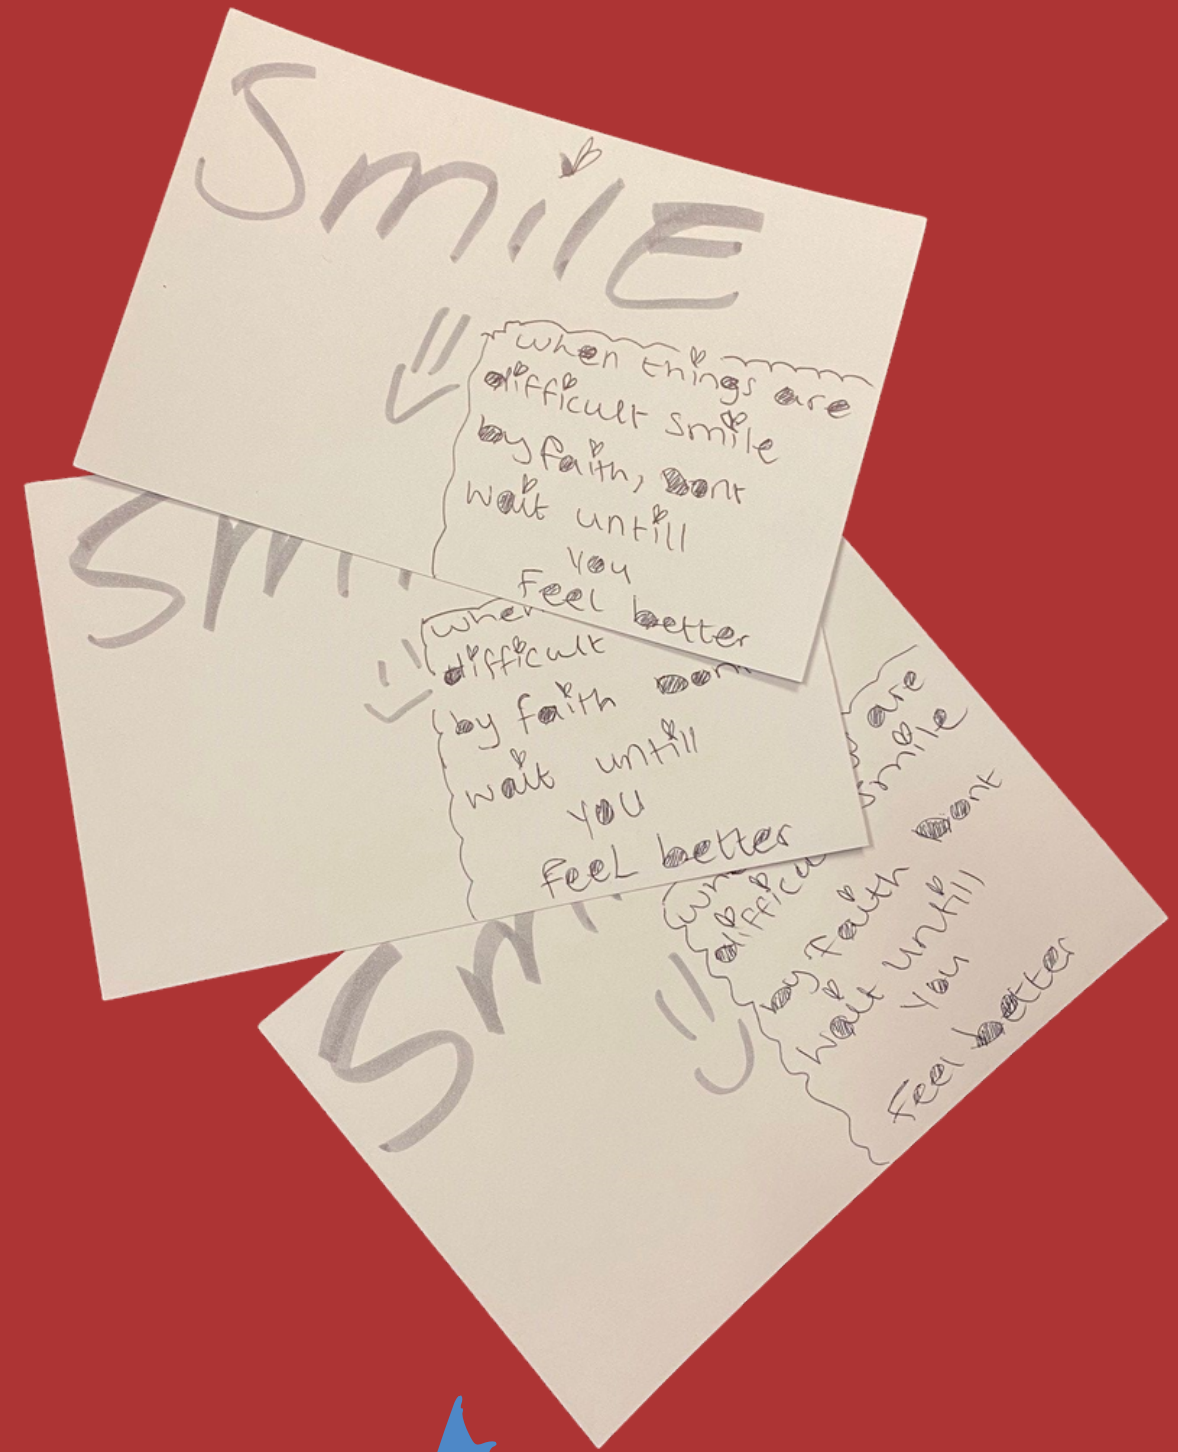 SmilE
when things are
difficult smile
by faith, Dont
wait untill
you
Feel better
Sm
when
difficult
by faith Dont
wait untill
you
FeeL better
Sm
are
smile
difficu
by faith Dont
wait untill
you
Feel better